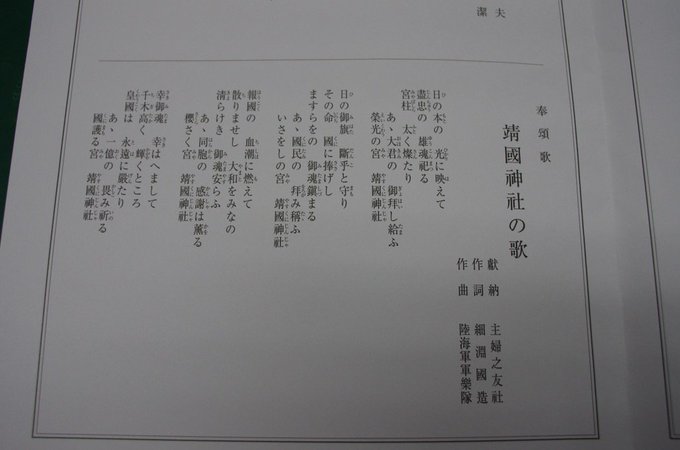 潔夫
奉頌歌
靖國神社の歌
献納 主婦之友社
作詞 細淵國造
作曲 陸海軍軍樂隊
日の本の 光に映えて
盡忠の 雄魂祀る
宮柱 太く燦たり
あゝ大君の 御拜し給ふ
榮光の宮 靖國神社
日の御旗 斷乎と守り
その命 國に捧げし
ますらをの 御魂鎭まる
あゝ國民の 拜み稱ふ
いさをしの宮 靖國神社
報國の 血潮に燃えて
散りませし 大和をみなの
清らけき 御魂安らふ
あゝ同胞の 感謝は薫る
櫻さく宮 靖國神社
幸御魂 幸はへまして
千木高く 輝くところ
皇國は 永遠に嚴たり
あゝ一億の 畏み祈る
國護る宮 靖國神社